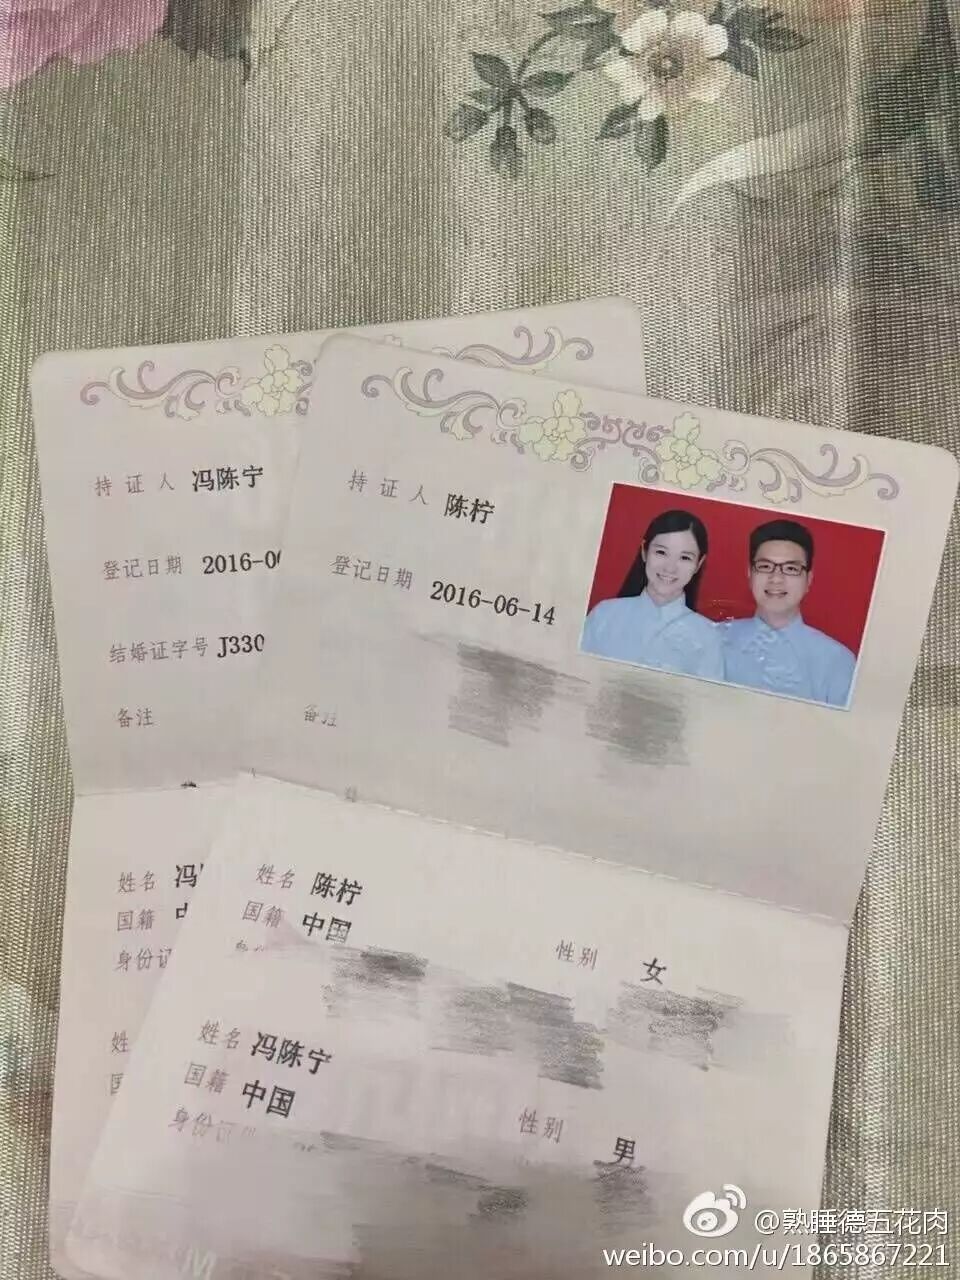 持证人 冯陈宁
登记日期 2016-0
结婚证字号 J330
备注
持证人 陈柠
登记日期 2016-06-14
备注
姓名 冯
国籍
身份证
姓
国
姓名 陈柠
国籍 中国
性别 女
身份
姓名 冯陈宁
国籍 中国
性别 男
身份证
@熟睡德五花肉
weibo.com/u/1865867221